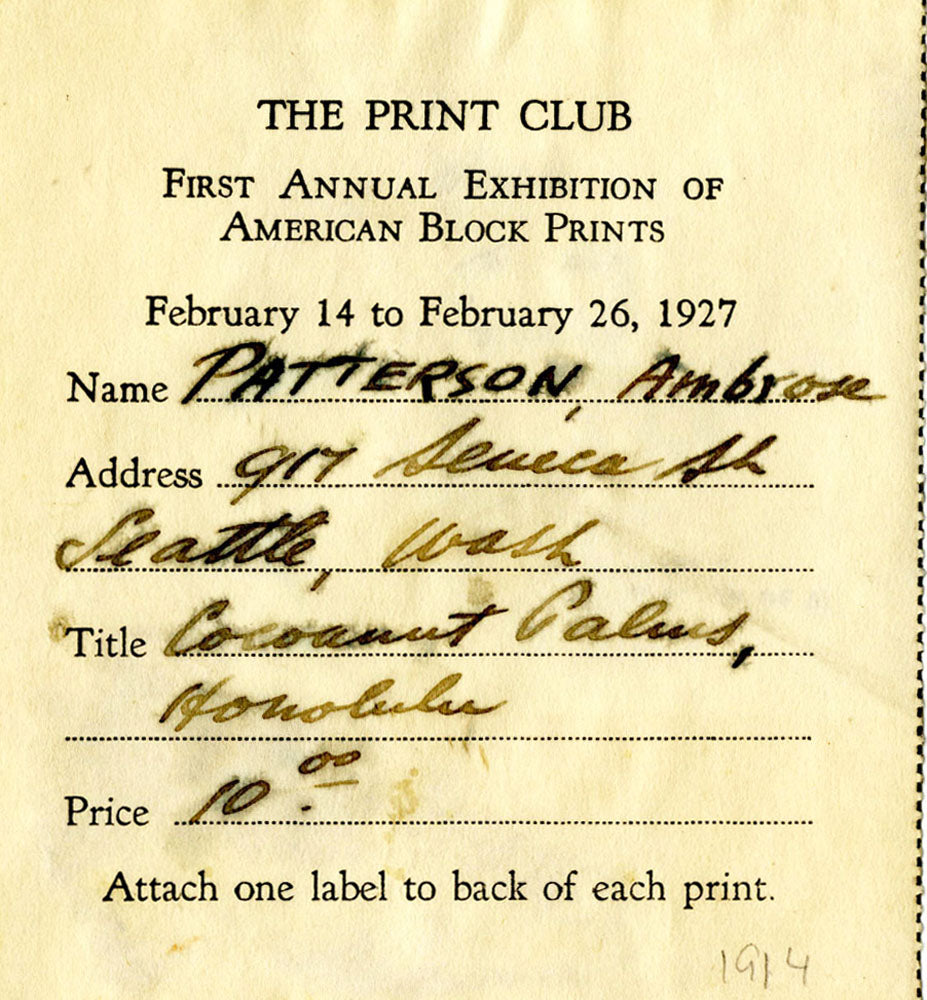 THE PRINT CLUB
FIRST ANNUAL EXHIBITION OF
AMERICAN BLOCK PRINTS
February 14 to February 26, 1927
Name PATTERSON, Ambrose
Address 917 Seneca St
Seattle, Wash
Title Cocoanut Palms,
Honolulu
Price 10.00
Attach one label to back of each print.
1914